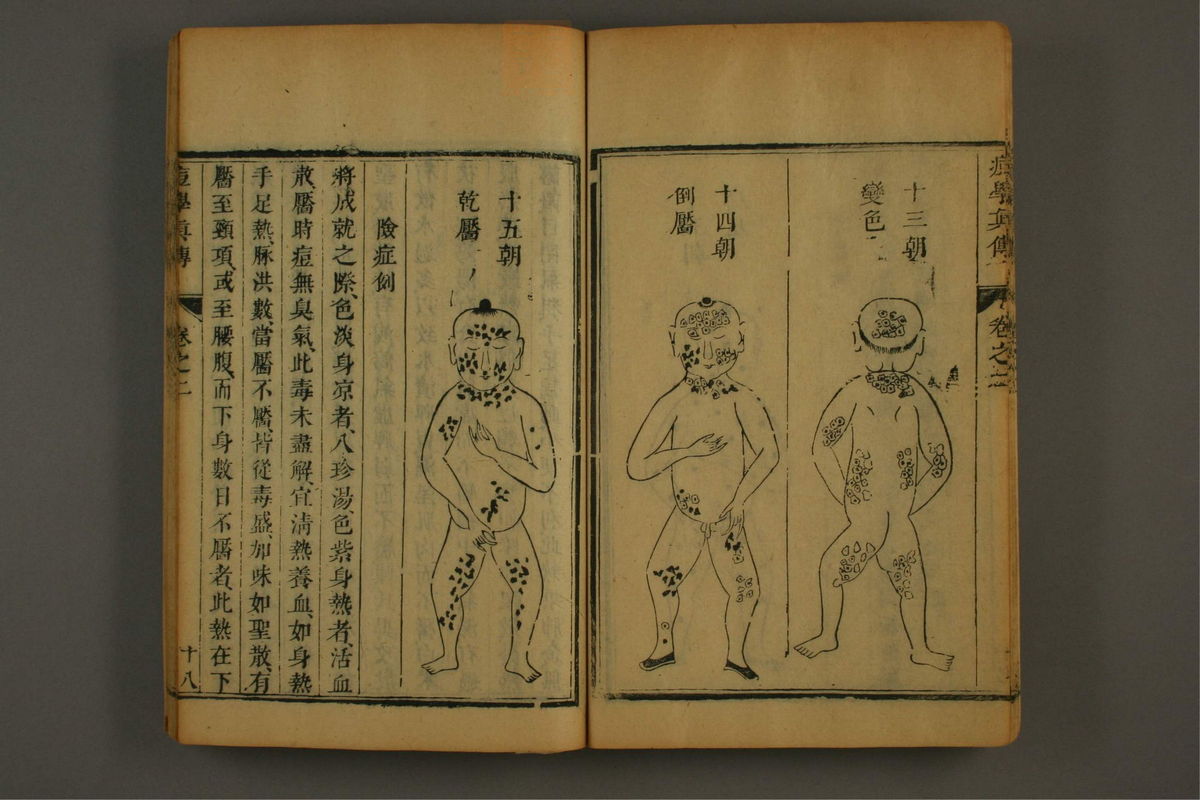 痘學真傳
卷之二
十三朝
變色
十四朝
倒靨
十五朝
乾靨
險症倒
將成就之際、色淡身凉者、八珍湯、色紫身熱者、活血
散、靨時痘無臭氣、此毒未盡解、宜淸熱養血、如身熱
手足熱、脉洪數、當靨不靨、皆從毒盛、加味如聖散、有
靨至頸項、或至腰腹、而下身數日不靨者、此熱在下
痘學真傳
卷之二
十八